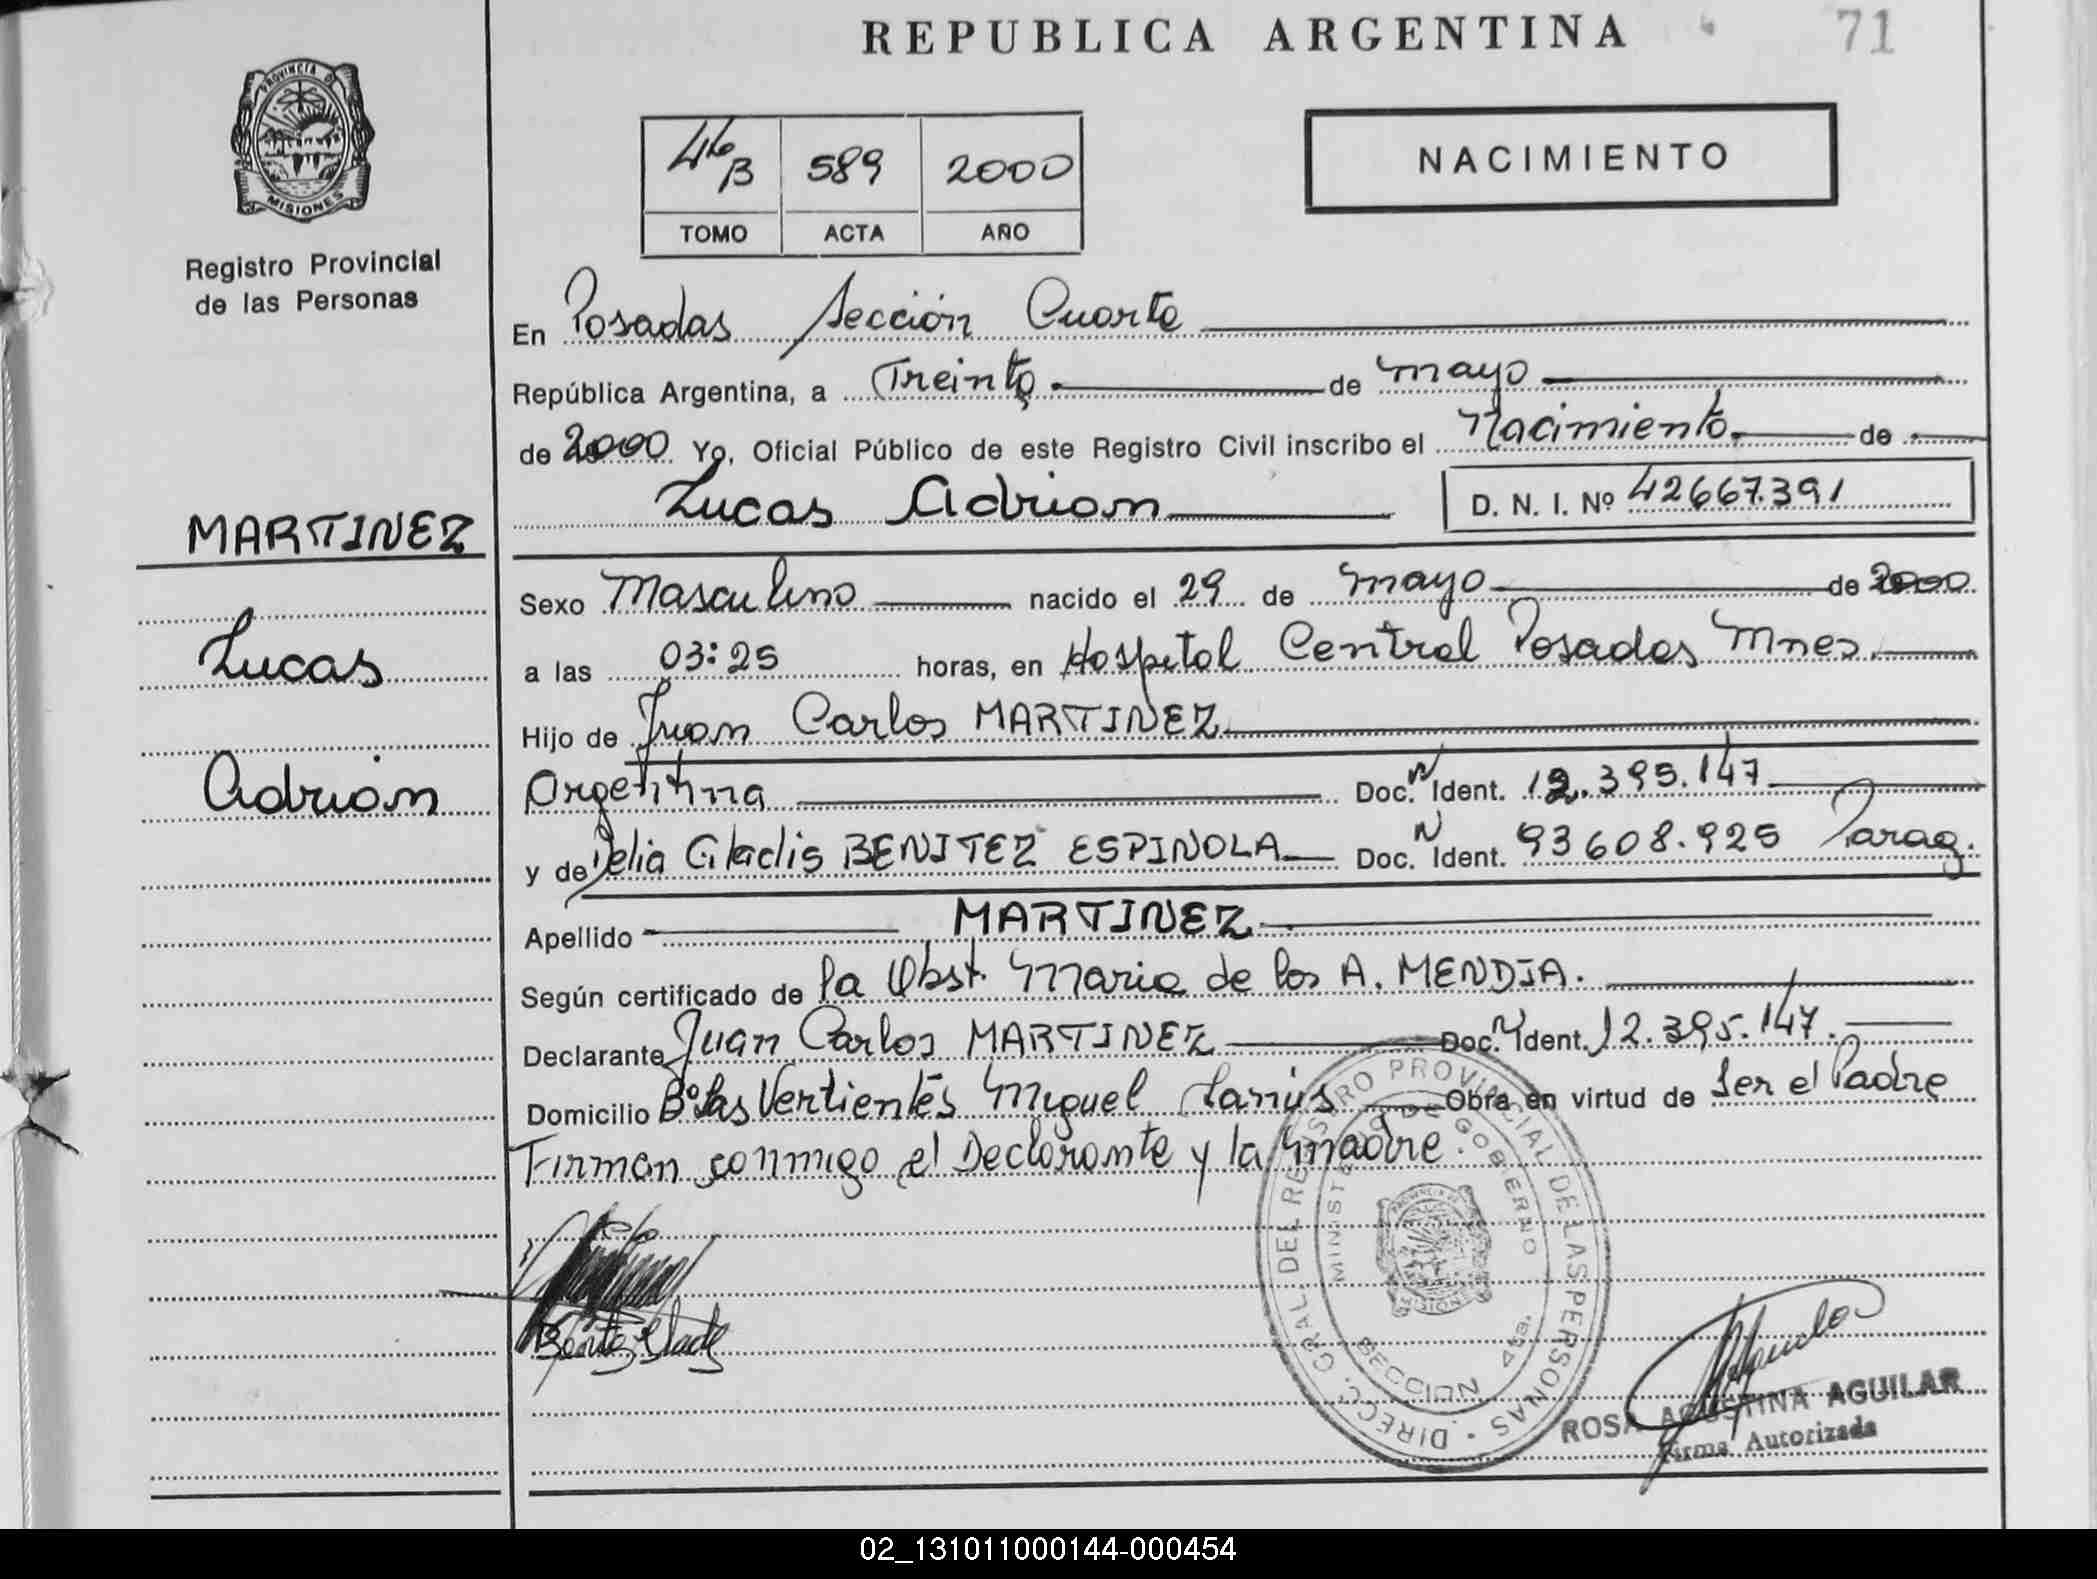 REPUBLICA ARGENTINA
71
PROVINCIA DE
MISIONES
Registro Provincial
de las Personas
46/B 589 2000
TOMO ACTA AÑO
NACIMIENTO
En Posadas Sección Cuarta
República Argentina, a Treinta de mayo
de 2000 Yo, Oficial Público de este Registro Civil inscribo el Nacimiento de
Lucas Adrian D. N. I. Nº 42667.391
MARTINEZ
Lucas
Adrián
Sexo Masculino nacido el 29 de mayo de 2000
a las 03:25 horas, en Hospital Central Posadas Mnes
Hijo de Juan Carlos MARTINEZ
Argentina Doc. N Ident. 12.395.147
y de Delia Gladis BENITEZ ESPINOLA Doc. N Ident. 93608.925 Parag.
Apellido MARTINEZ
Según certificado de la Obst. Maria de los A. MENDIA.
Declarante Juan Carlos MARTINEZ Doc. N Ident. 12.395.147.
Domicilio Bº Las Vertientes Miguel Lanús Obra en virtud de Ser el Padre
Firman conmigo el Declarante y la madre.
DIRECC. GRAL. DEL REGISTRO PROVINCIAL DE LAS PERSONAS
MINISTERIO DE GOBIERNO
PROVINCIA DE
MISIONES
SECCION 4ta.
Benitez Glads
ROSA AGUSTINA AGUILAR
Firma Autorizada
02_131011000144-000454